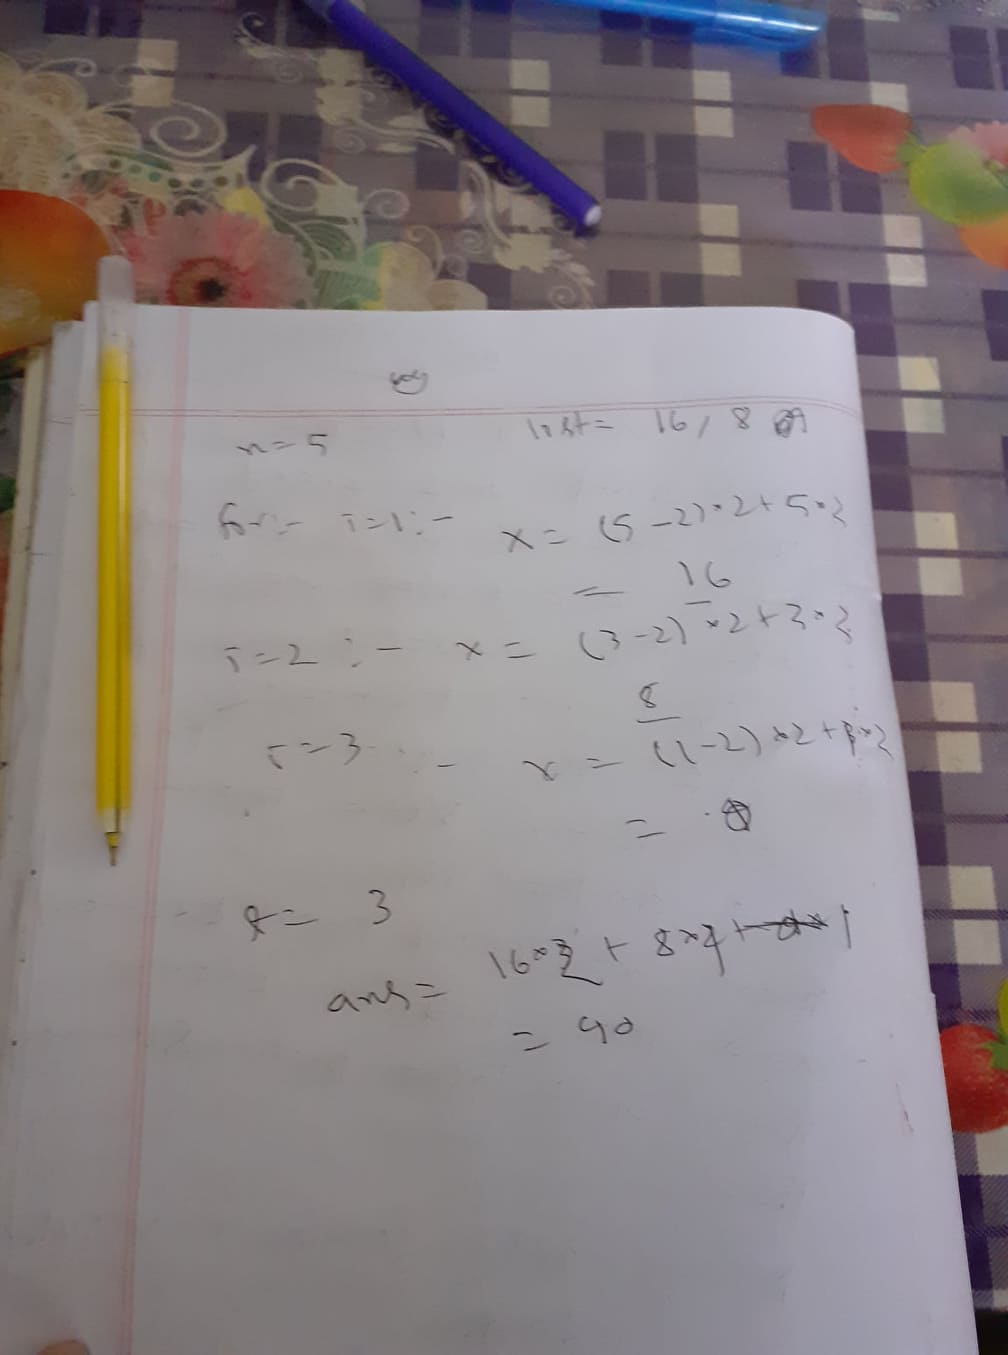 n=5 list= 16, 8
for:- i=1:- x= (5-2)*2+5*2
= 16
i=2 :- x= (3-2)*2+3*2
8
i=3 - x = (1-2)*2+ *2
=
= 3
ans= 16* + 8* +
= 90